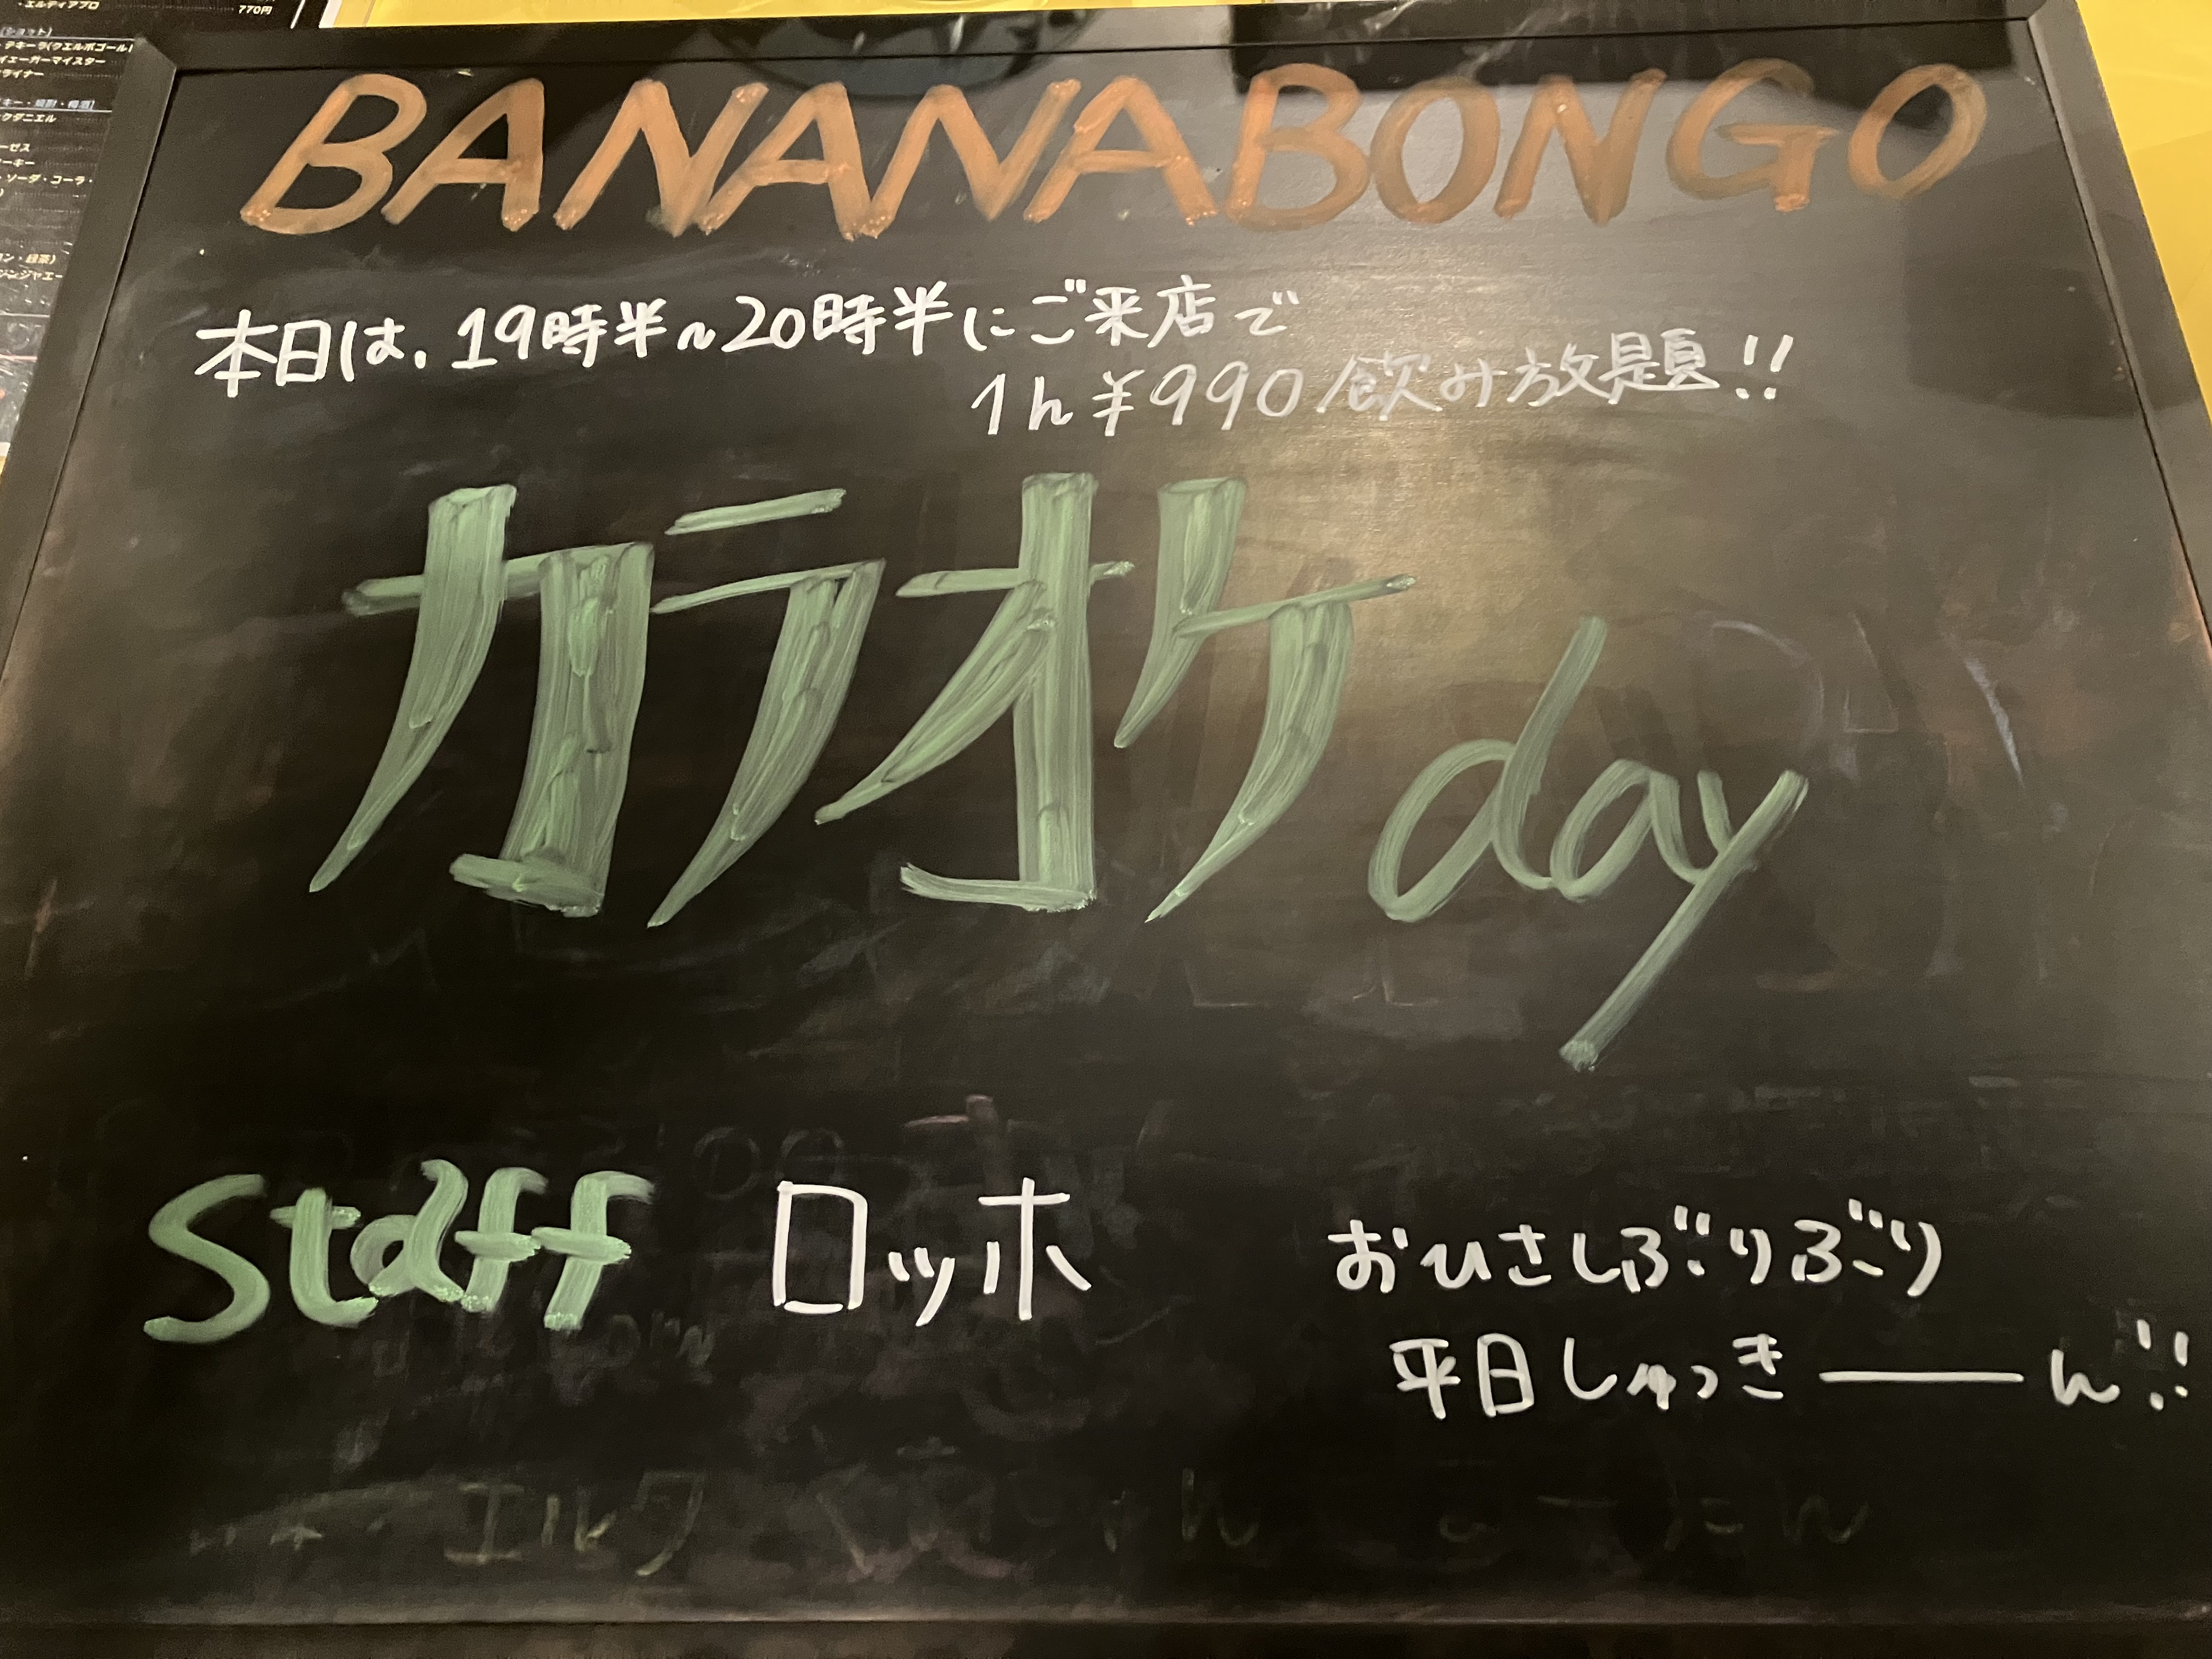 エルディアブロ
770円
(ショット)
テキーラ(クエルボゴールド
イェーガーマイスター
ライナー
キー・焼酎・梅酒)
クダニエル
ーゼス
ーキー
・ソーダ・コーラ・
ン・緑茶)
ジンジャエー
BANANABONGO
本日は、19時半～20時半にご来店で
1h¥990/飲み放題!!
カラオケday
Staff ロッホ
おひさしぶりぶり
平日しゅっきーん!!